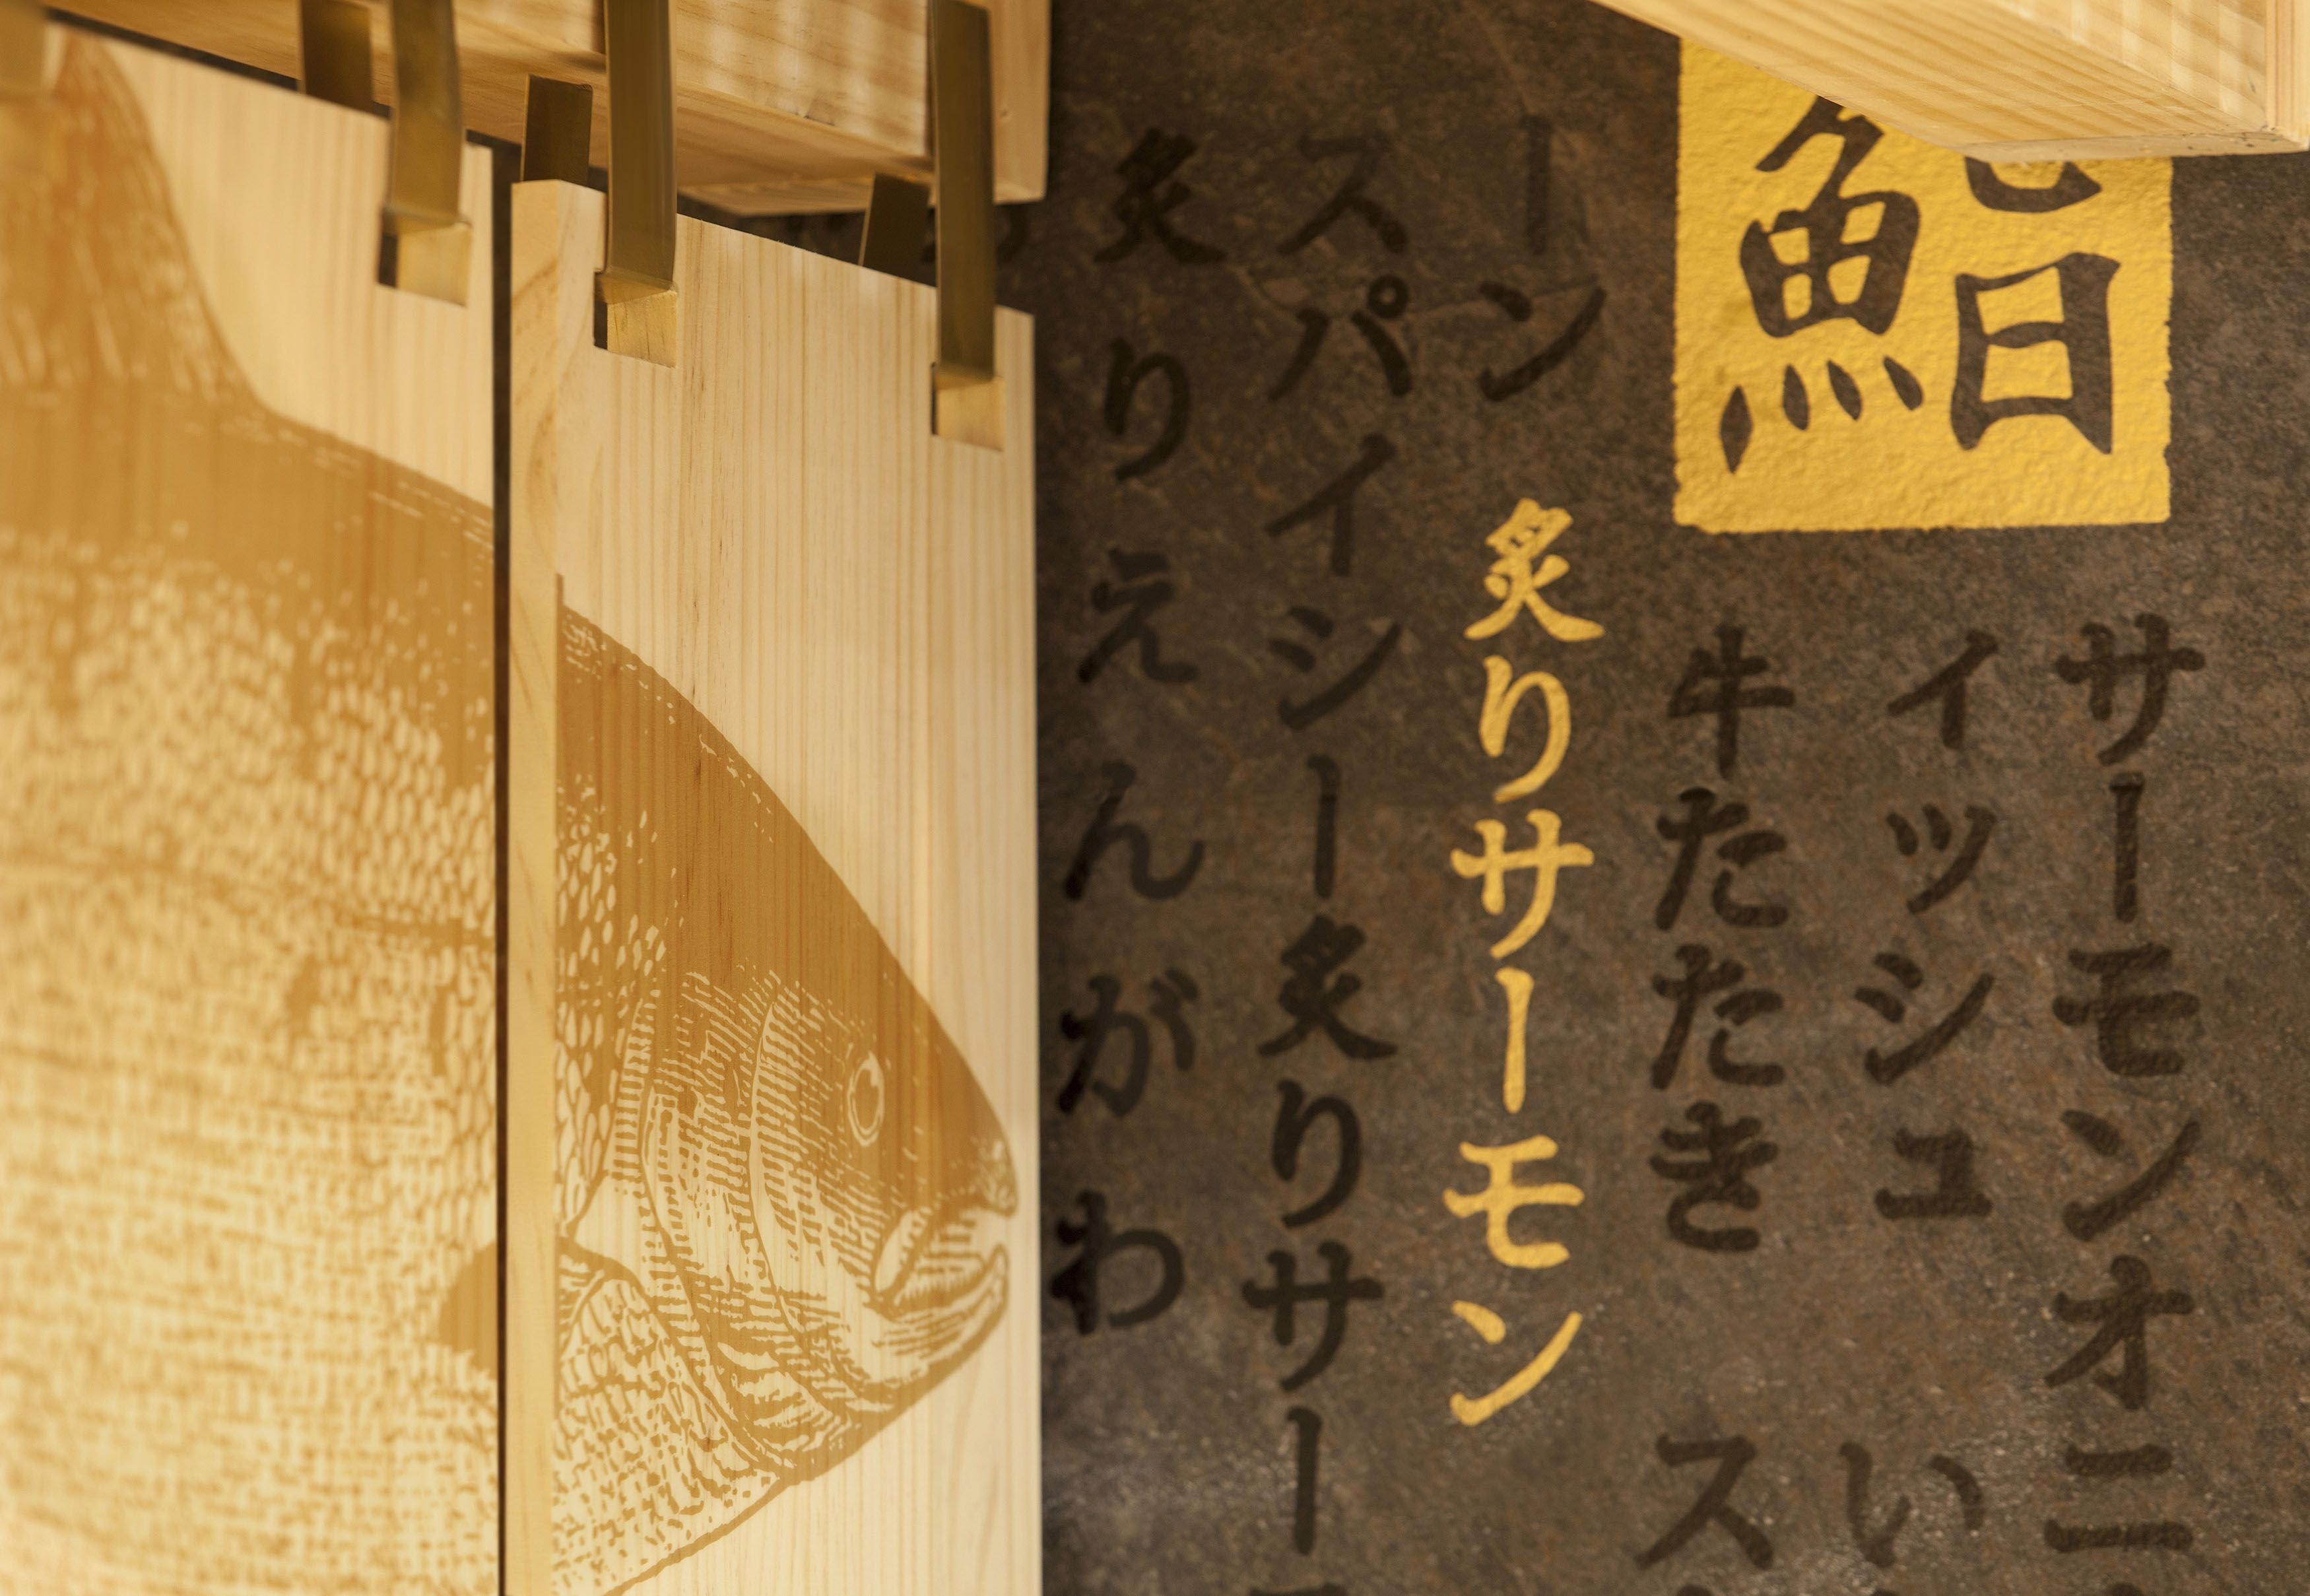 鮨
サーモンオニ
イッシュ い
牛たたき ス
ーン
炙りサーモン
スパイシー炙りサー
炙りえんがわ